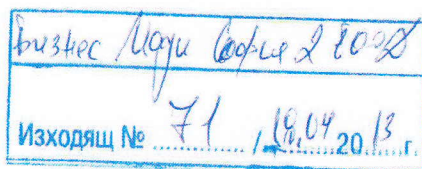 Бизнес Моди София 2 ЕООД
Изходящ № 71 / 10.04 2013 г.